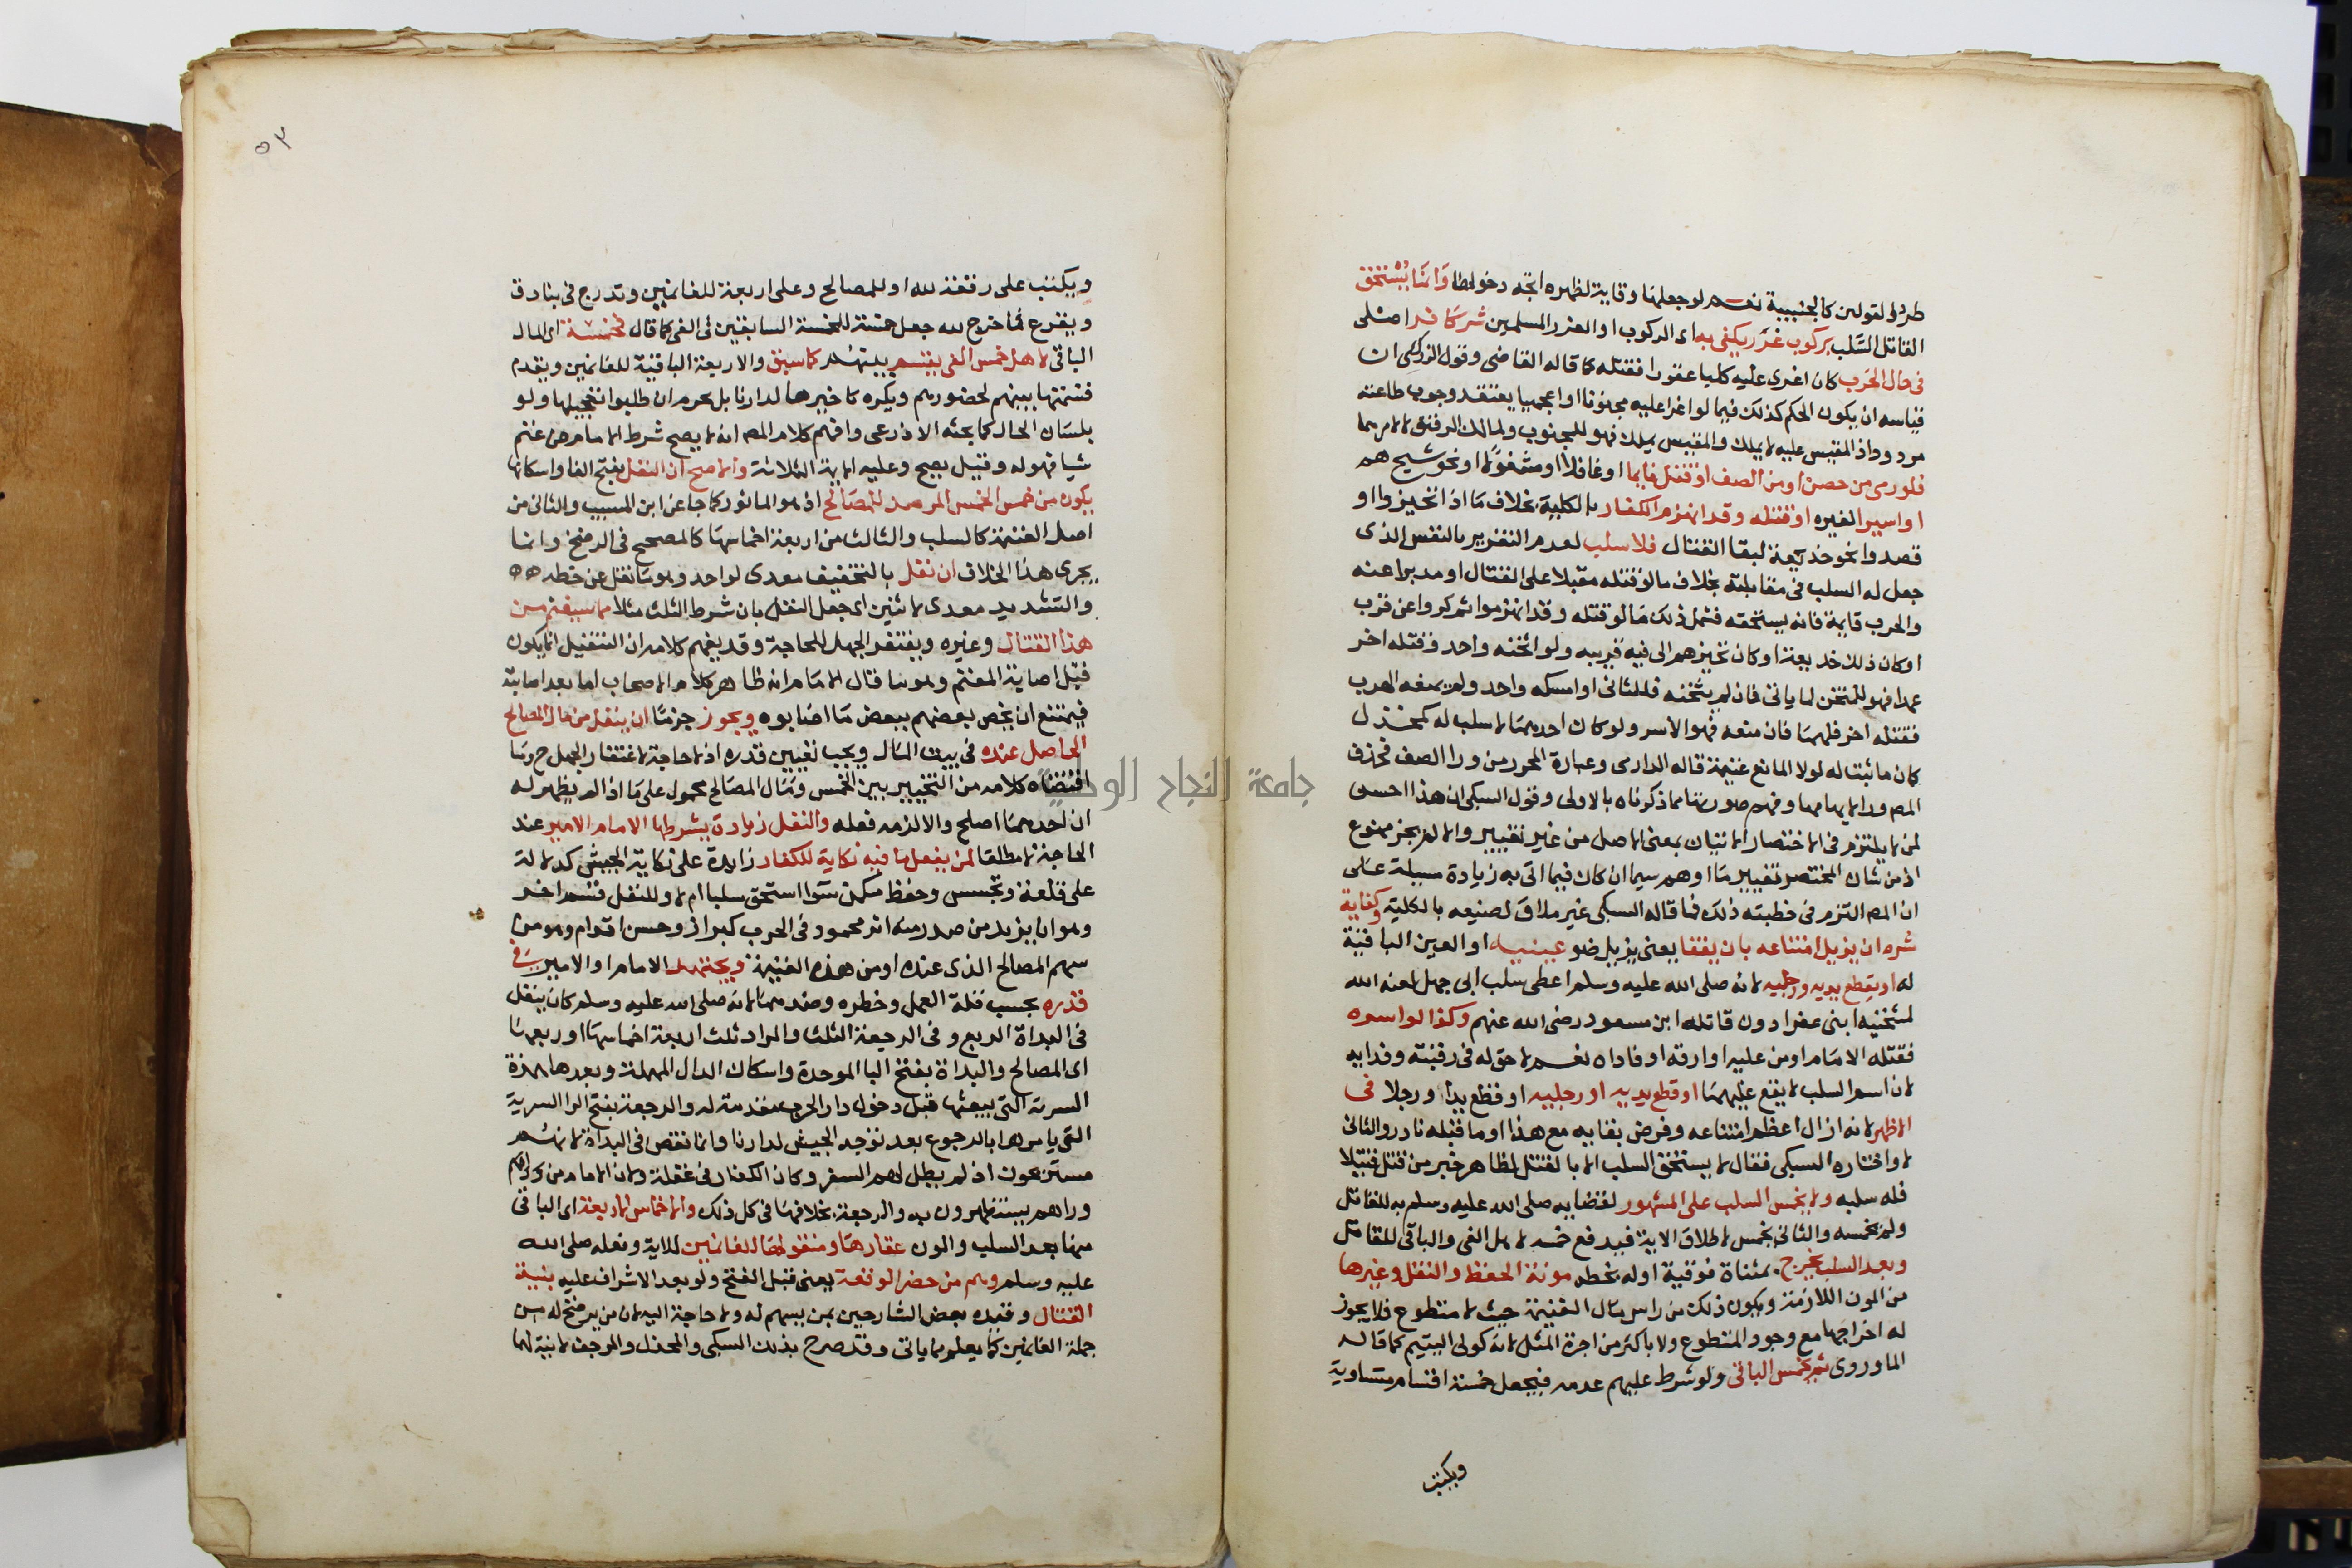 طردا لقولين كالجنيبة نعم لو جعلها وقاية لظهره اتجه دخولها وانما يستحق
القاتل السلب بركوب غرر يكفى به اى الركوب او الغرر المسلمين شر كافر اصلى
فى حال الحرب كان اغرى عليه كلبا عقورا فقتله كما قاله القاضى وقول الزركشى ان
قياسه ان يكون الحكم كذلك فيما لو اغرا عليه مجنونا او اعجميا يعتقد وجوب طاعته
مردود اذ المقيس عليه لا يملك والمقيس يملك فهو للمجنون ولمالك الرقيق لا لامرهما
فلو رمى من حصن او من الصف او قتل نايما او غافلا او مشغولا او نحو شيخ هم
او اسيرا لغيره او قتله وقد انهزم الكفار بالكلية بخلاف ما اذا تحيزوا او
قصدوا نحو خديعة لبقا القتال فلا سلب لعدم التغرير بالنفس الذى
جعل له السلب فى مقابلته بخلاف ما لو قتله مقبلا على القتال او مدبرا عنه
والحرب قايمة فانه يستحقه فشمل ذلك ما لو قتله وقد انهزموا ثم كروا عن قرب
او كان ذلك خديعة او كان تحيزهم الى فية قريبه ولو اثخنه واحد وقتله اخر
عمدا فهو للمثخن لما ياتى فان لم يثخنه فللثانى او امسكه واحد ولم يمنعه الهرب
فقتله اخر فلهما فان منعه فهو الاسر ولو كان احدهما لا سلب له كمخذل
كان ما ثبت له لولا المانع غنيمة قاله الدارمى وعبارة المحرر من ورا الصف فحذف
المص ورا لايهامها وفهم صورتها مما ذكرناه بالاولى وقول السبكى ان هذا احسن
لمن لا يلتزم فى الاختصار الاتيان بمعنى الاصل من غير تغيير والا لم يجز ممنوع
اذ من شان المختصر تغيير ما اوهم سيما ان كان فيما اتى به زيادة مسيلة على
ان المص التزم فى خطبته ذلك فما قاله السبكى غير ملاق لصنيعه بالكلية وكفاية
شره ان يزيل امتناعه بان يفقا يعنى يزيل ضو عينيه او العين الباقية
له او يقطع يديه ورجليه لانه صلى الله عليه وسلم اعطى سلب ابى جهل لعنه الله
لمثخنيه ابنى عفرا دون قاتله ابن مسعود رضى الله عنهم وكذا لو اسره
فقتله الامام او من عليه او ارقه او فاداه نعم لا حق له فى رقبته وفدايه
لان اسم السلب لا يقع عليهما او قطع يديه او رجليه او قطع يدا ورجلا فى
الاظهر لانه ازال اعظم امتناعه وفرض بقايه مع هذا او ما قبله نادر والثانى
لا واختاره السبكى فقال لا يستحق السلب الا بالقتل لظاهر خبر من قتل قتيلا
فله سلبه ولا يخمس السلب على المشهور لقضايه صلى الله عليه وسلم به للقاتل
ولم يخمسه والثانى يخمس لاطلاق الاية فيدفع خمسه لاهل الفى والباقى للقاتل
وبعد السلب تخرج بمثناة فوقية اوله بخطه مونة الحفظ والنقل وغيرها
من المون اللازمة ويكون ذلك من راس مال الغنيمة حيث لا متطوع فلا يجوز
له اخراجها مع وجود المتطوع ولا باكثر من اجرة المثل لانه كولى اليتيم كما قاله
الماوردى ثم يخمس الباقى ولو شرط عليهم عدمه فيجعل خمسة اقسام متساوية
ويكتب
٥٣
ويكتب على رقعة لله او للمصالح وعلى اربعة للغانمين وتدرج فى بنادق
ويقرع فما خرج لله جعل خمسة للخمسة السابقين فى الفى كما قال فخمسة اى المال
الباقى لاهل خمس الفى يقسم بينهم كما سبق والاربعة الباقية للغانمين ويقدم
قسمتها بينهم لحضورهم ويكره تاخيرها لدارنا بل يحرم ان طلبوا تعجيلها ولو
بلسان الحال كما بحثه الاذرعى وافهم كلام المص انه لا يصح شرط الامام من غنم
شيا فهو له وقيل يصح وعليه الايمة الثلاثة والاصح ان النفل بفتح الفا واسكانها
يكون من خمس الخمس المرصد للمصالح اذ هو الماثور كما جا عن ابن المسيب والثانى من
اصل الغنيمة كالسلب والثالث من اربعة اخماسها كالمصحح فى الرضخ وانما
يجرى هذا الخلاف ان نفل بالتخفيف معدى لواحد وهو ما نقل عن خطه
والتشديد معدى لاثنين اى جعل النفل بان شرط الثلث مثلا مما سيغنم من
هذا القتال وغيره ويغتفر الجهل للحاجة وقد يفهم كلامه ان التنفيل انما يكون
قبل اصابة المغنم وهو ما قال الامام انه ظاهر كلام الاصحاب اما بعد اصابته
فيمتنع ان يخص بعضهم ببعض ما اصابوه ويجوز جزما ان ينفل من مال المصالح
الحاصل عنده فى بيت المال ويجب تعيين قدره اذ لا حاجة لاغتفار الجهل ح وما
اقتضاه كلامه من التخيير بين الخمس ومال المصالح محمول على ما اذا لم يظهر له
ان احدهما اصلح والا لزمه فعله والنفل زيادة يشرطها الامام الامير عند
الحاجة لا مطلقا لمن يفعل ما فيه نكاية للكفار زايدة على نكاية الجيش كدلالة
على قلعة وتجسس وحفظ مكمن سوا استحق سلبا ام لا وللنفل قسم اخر
وهو ان يزيد من صدر منه اثر محمود فى الحرب كبراز وحسن اقدام وهو من
سهم المصالح الذى عنده او من هذه الغنيمة ويجتهد الامام او الامير فى
قدره بحسب قلة العمل وخطره وضدهما لانه صلى الله عليه وسلم كان ينفل
فى البداة الربع وفى الرجعة الثلث والمراد ثلث اربعة اخماسها او ربعها
اى المصالح والبداة بفتح البا الموحدة واسكان الدال المهملة وبعدها همزة
السرية التى يبعثها قبل دخول دار الحرب مقدمة له والرجعة بفتح الرا السرية
التى يامرها بالرجوع بعد توجه الجيش لدارنا وانما نقص فى البداة لانهم
مستريحون اذ لم يطل لهم السفر وكان الكفار فى غفلة ولان الامام من ورائهم
وراهم يستظهرون به والرجعة بخلافها فى كل ذلك والاخماس الاربعة اى الباقى
منها بعد السلب والمون عقارها ومنقولها للغانمين للاية وفعله صلى الله
عليه وسلم وهم من حضر الوقعة يعنى قبل الفتح ولو بعد الاشراف عليه بنية
القتال وقيده بعض الشارحين بمن يسهم له ولا حاجة اليه لان من يرضخ له من
جملة الغانمين كما يعلم مما ياتى وقد صرح بذلك السبكى والمخذل والمرجف لا نية لهما
جامعة النجاح الوطنية